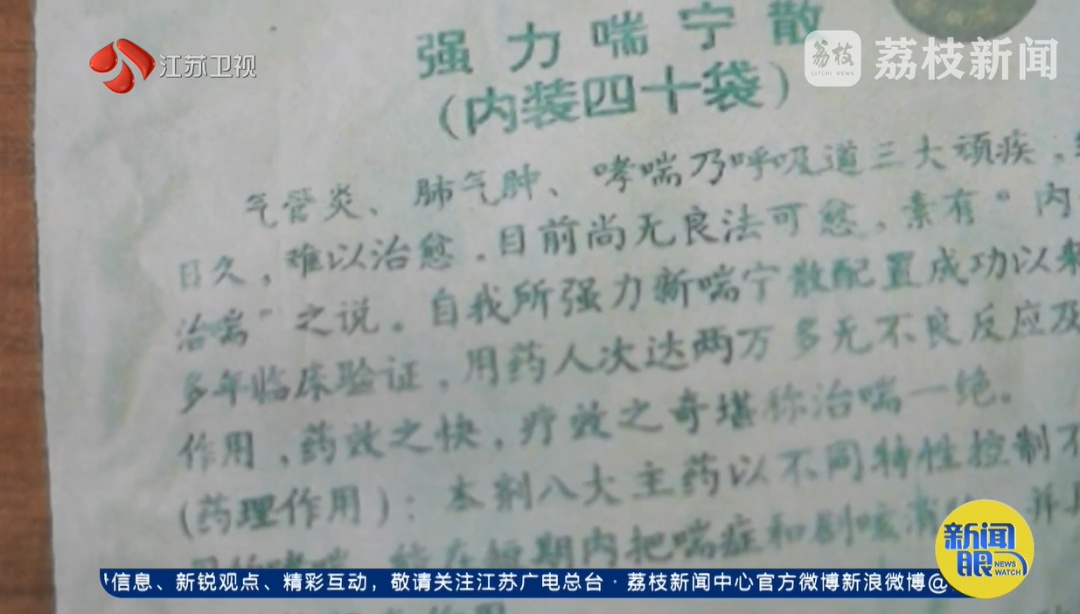 江苏卫视
荔枝
LITCHI NEWS
荔枝新闻
强力喘宁散
(内装四十袋)
气管炎、肺气肿、哮喘乃呼吸道三大顽疾，
日久，难以治愈．目前尚无良法可愈，素有“内
治喘”之说。自我所强力新喘宁散配置成功以来
多年临床验证，用药人次达两万多无不良反应及
作用，药效之快，疗效之奇堪称治喘一绝。
(药理作用)：本剂八大主药以不同特性控制不
能在短期内把喘症和剧咳消
新闻
眼
NEWS
WATCH
信息、新锐观点、精彩互动，敬请关注江苏广电总台·荔枝新闻中心官方微博新浪微博@
作用